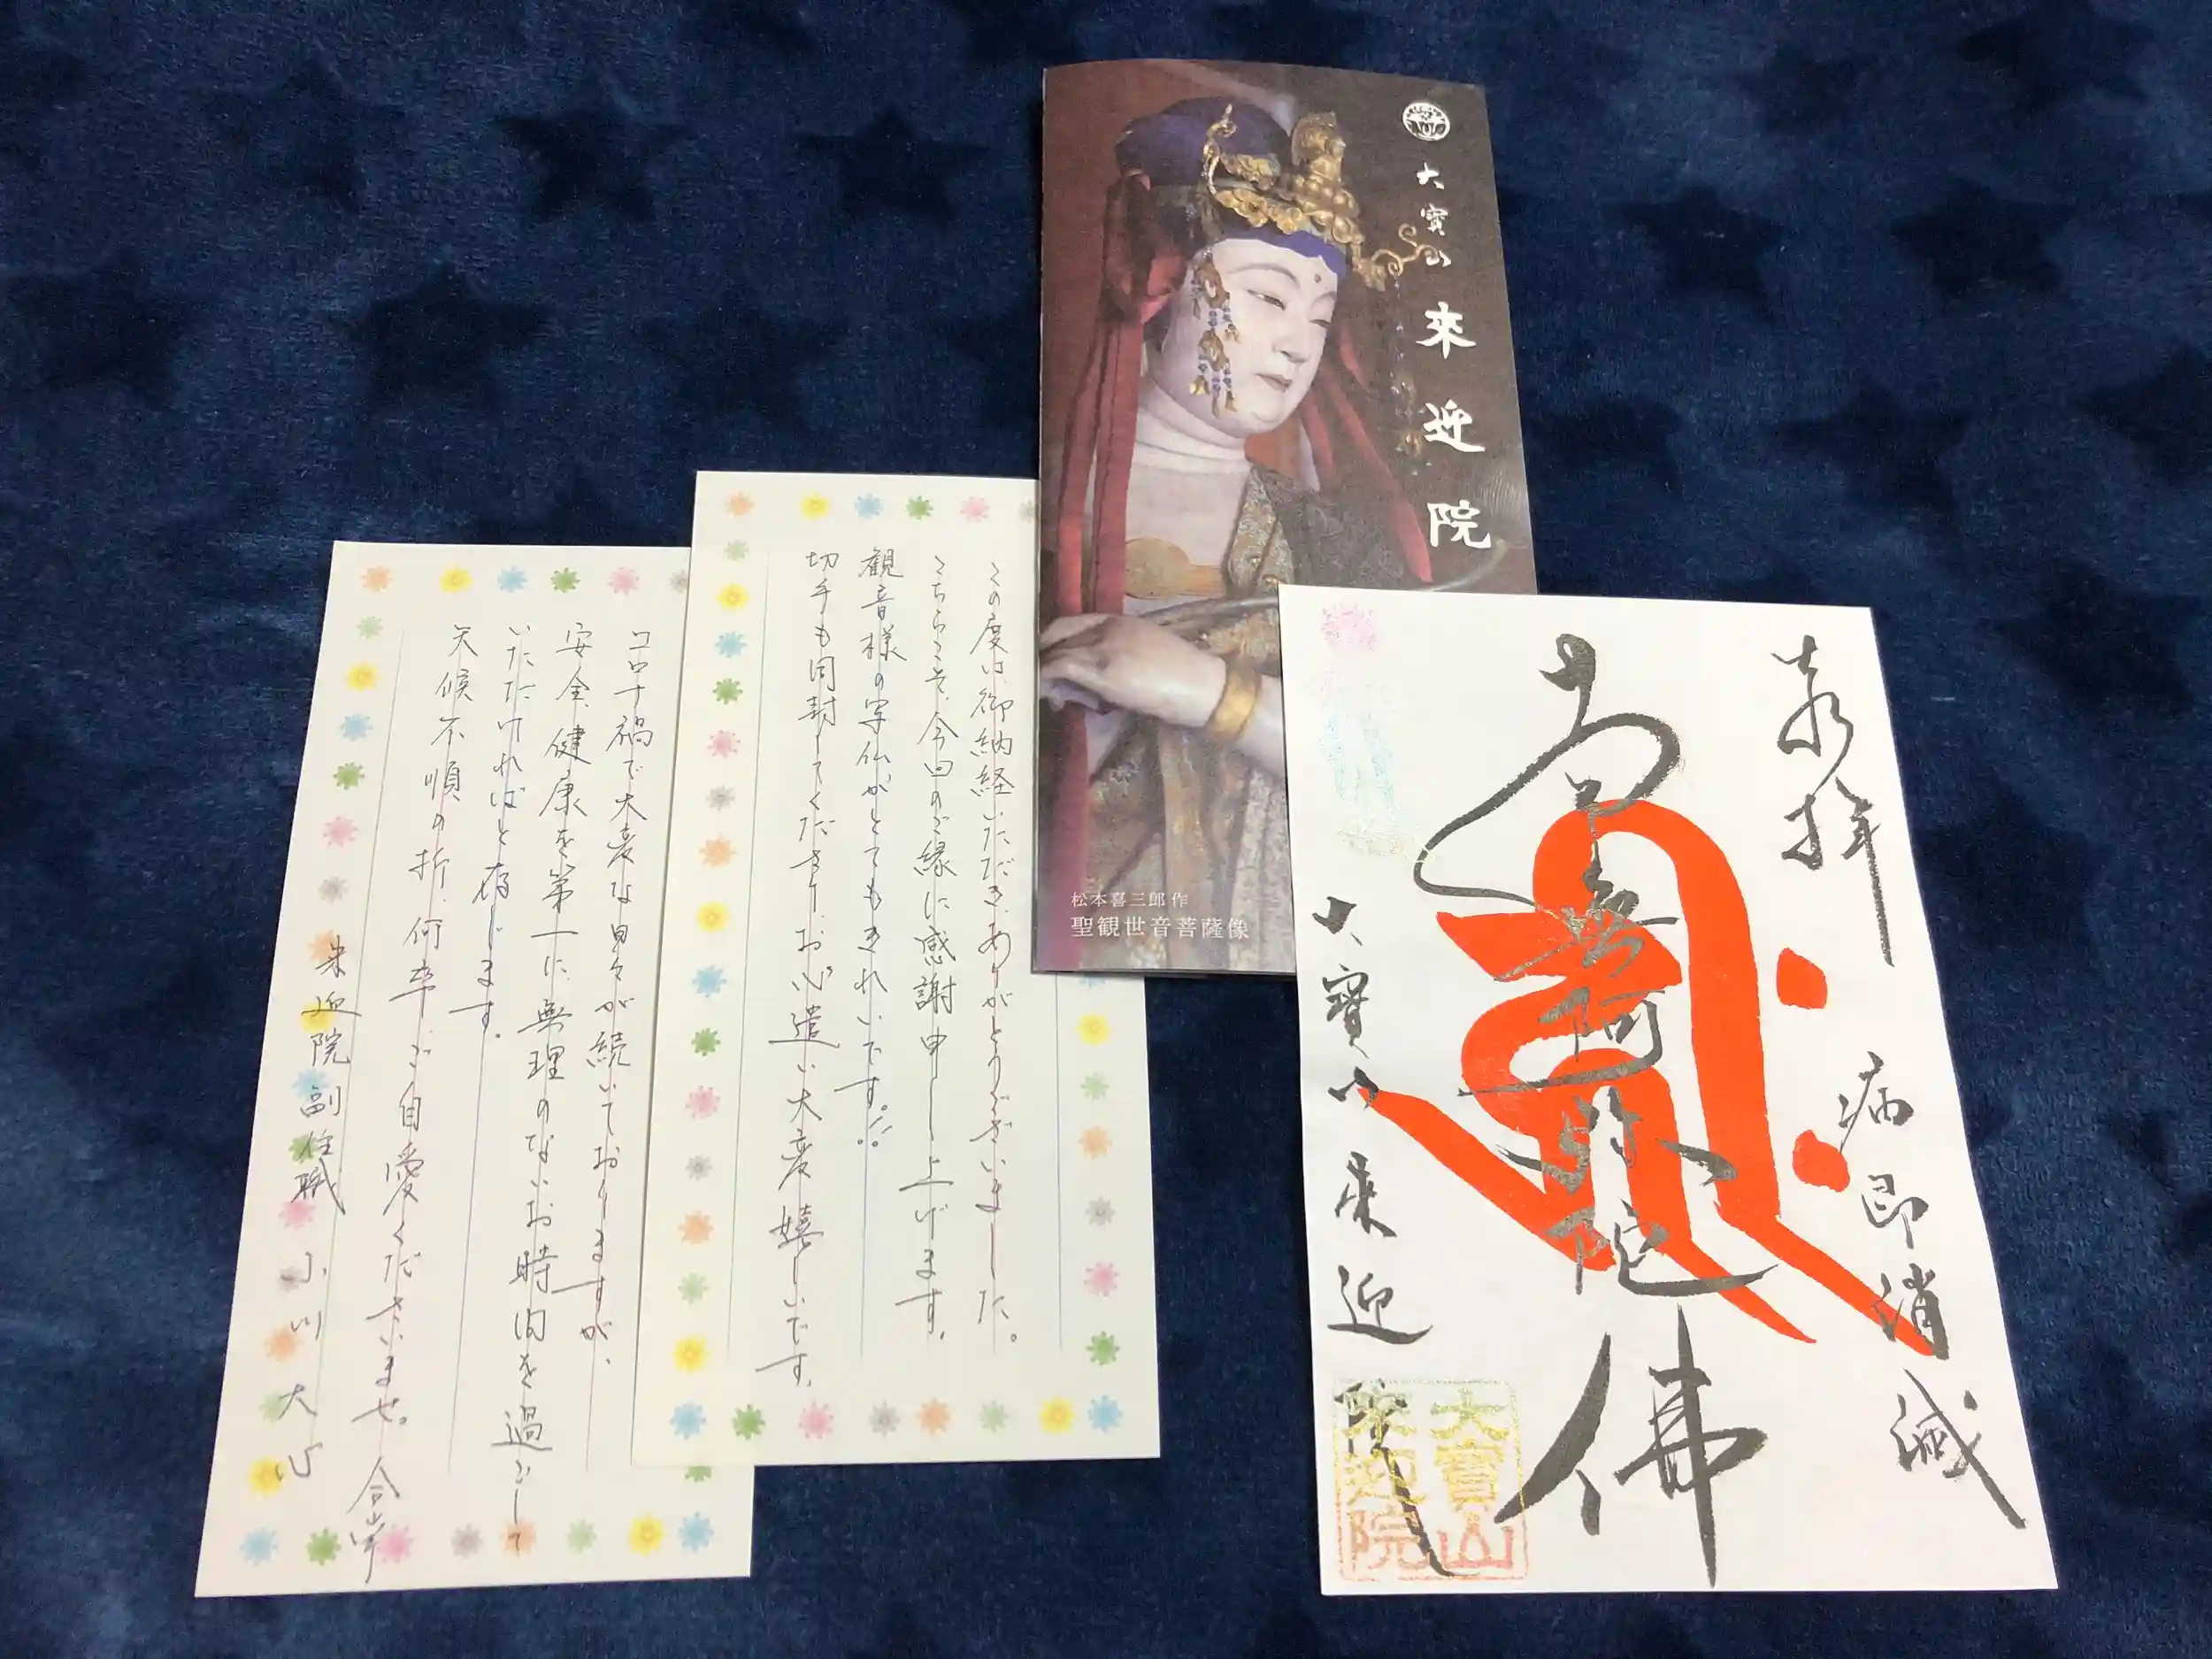 この度は御納経いただき、ありがとうございました。
こちらこそ、今回のご縁に感謝申し上げます。
観音様の写仏がとてもきれいです。
切手も同封してくださり、お心遣い大変嬉しいです。
コロナ禍で大変な日々が続いておりますが、
安全、健康を第一に、無理のないお時間を過ごして
いただければと存じます。
天候不順の折、何卒、ご自愛くださいませ。合掌
来迎院副住職 小川大心
大寳山
來迎院
松本喜三郎 作
聖観世音菩薩像
奉拝
病即消滅
南無阿弥陀佛
大寳山来迎院
大寳山
来迎院